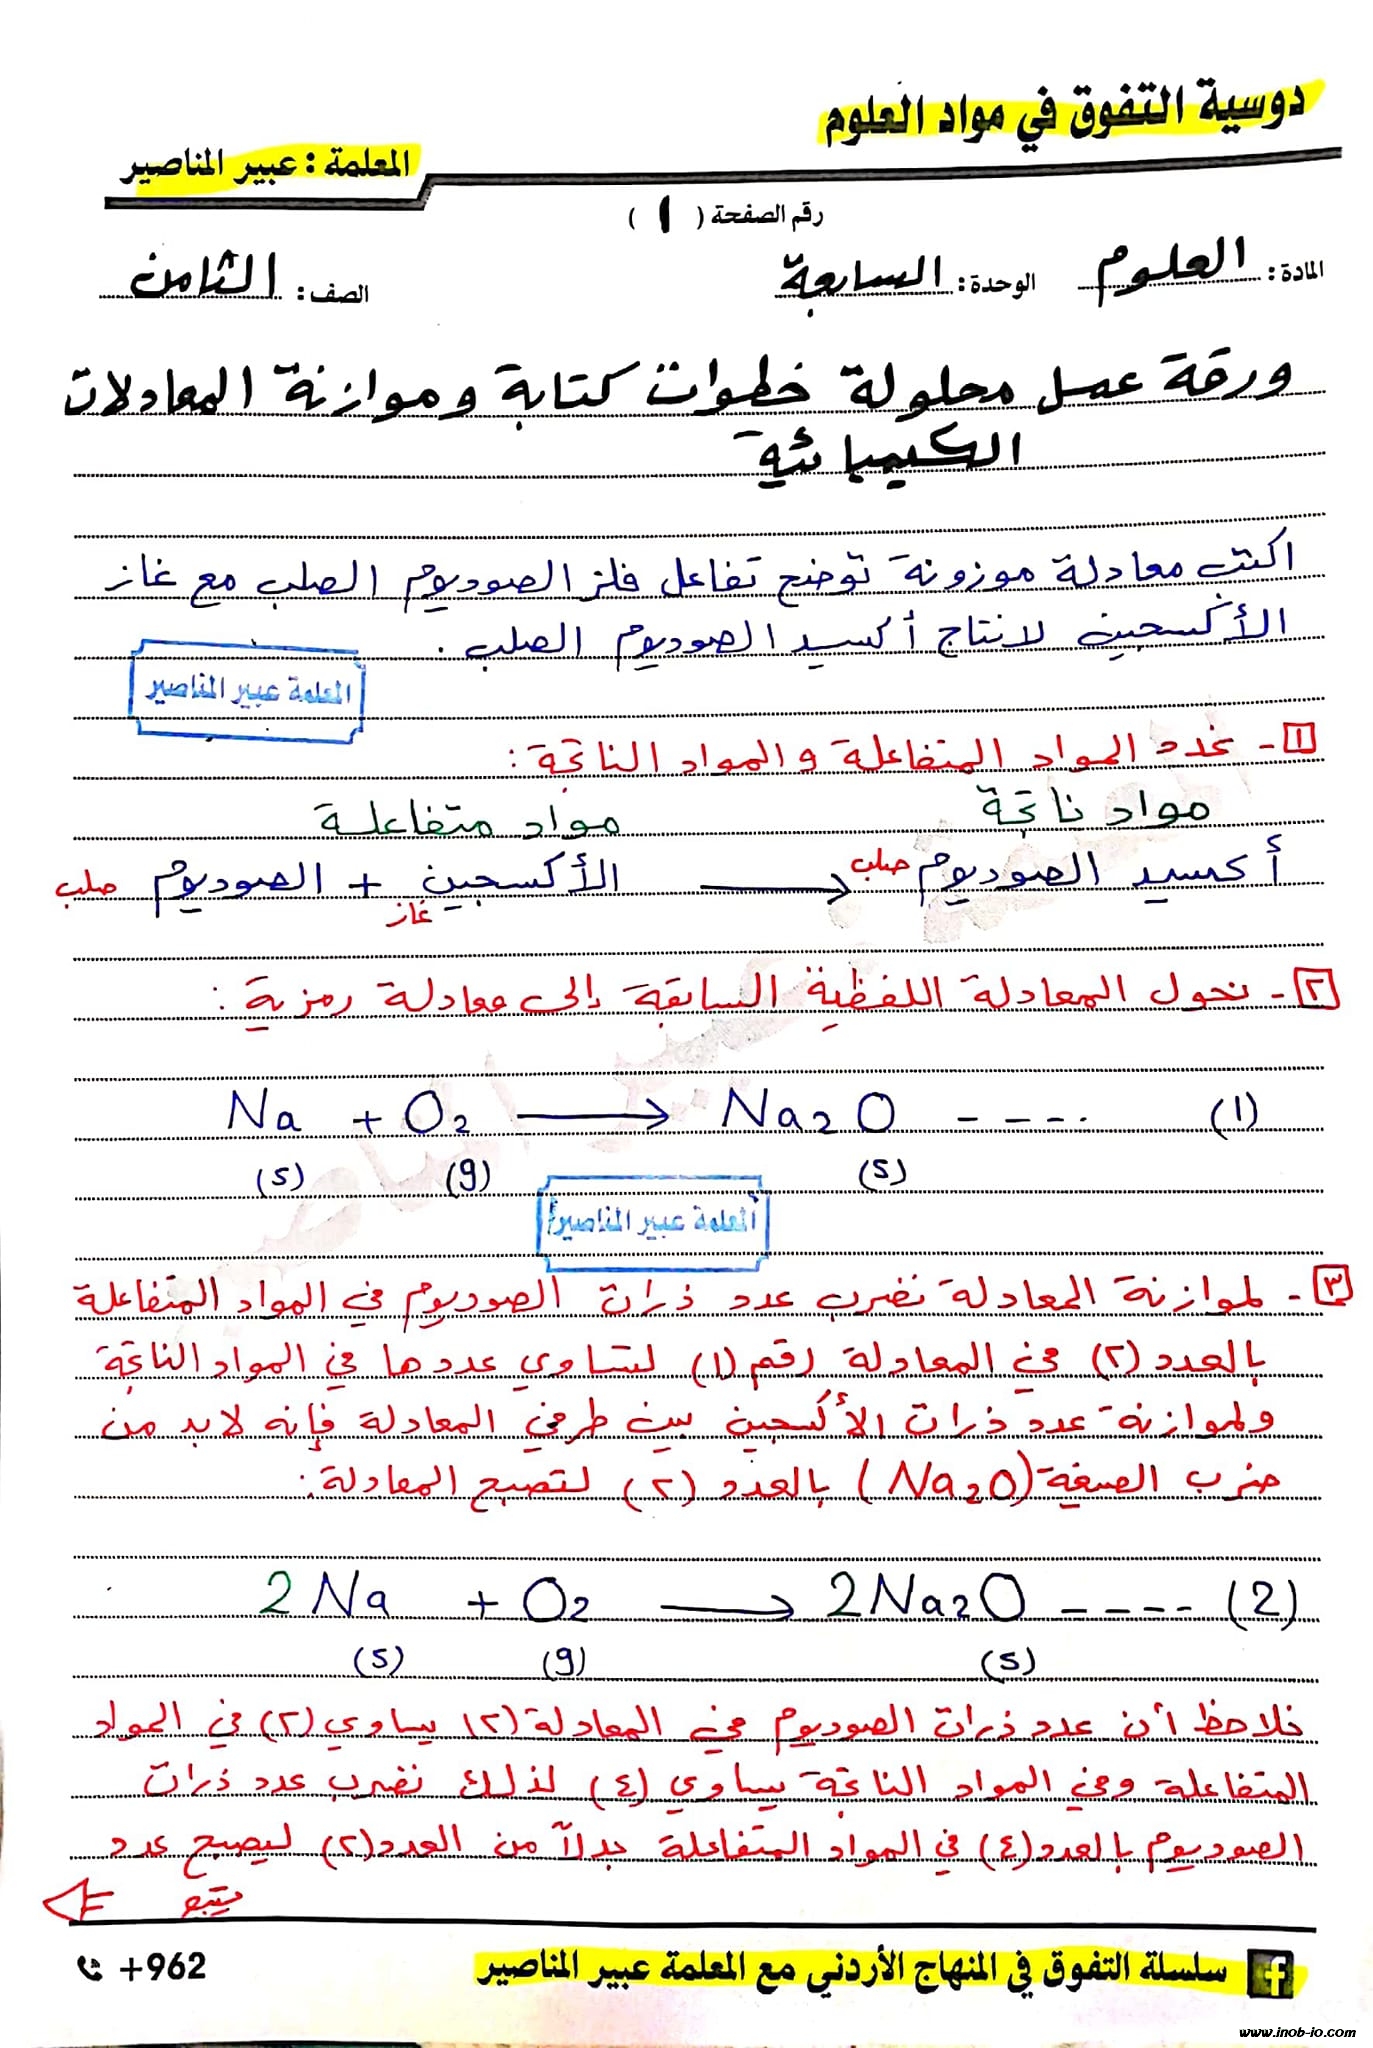 دوسية التفوق في مواد العلوم
المعلمة : عبير المناصير
رقم الصفحة ( ١ )
المادة : العلوم الوحدة : السابعة الصف : الثامن
ورقة عمل محلولة خطوات كتابة وموازنة المعادلات
الكيميائية
اكتب معادلة موزونة توضح تفاعل فلز الصوديوم الصلب مع غاز
الأكسجين لانتاج أكسيد الصوديوم الصلب .
المعلمة عبير المناصير
١ - نحدد المواد المتفاعلة والمواد الناتجة :
مواد متفاعلة مواد ناتجة
صلب الصوديوم + الأكسجين غاز → أكسيد الصوديوم صلب
٢ - نحول المعادلة اللفظية السابقة إلى معادلة رمزية :
Na + O2 → Na2O ---- (1)
(s) (g) (s)
المعلمة عبير المناصير
٣ - لموازنة المعادلة نضرب عدد ذرات الصوديوم في المواد المتفاعلة
بالعدد (٢) في المعادلة رقم (١) لتساوي عددها في المواد الناتجة
ولموازنة عدد ذرات الأكسجين بين طرفي المعادلة فإنه لابد من
ضرب الصيغة (Na2O) بالعدد (٢) لتصبح المعادلة :
2Na + O2 → 2Na2O ---- (2)
(s) (g) (s)
نلاحظ أن عدد ذرات الصوديوم في المعادلة (٢) يساوي (٢) في المواد
المتفاعلة وفي المواد الناتجة يساوي (٤) لذلك نضرب عدد ذرات
الصوديوم بالعدد (٤) في المواد المتفاعلة بدلاً من العدد (٢) ليصبح عدد
يتبع
سلسلة التفوق في المنهاج الأردني مع المعلمة عبير المناصير
+962
www.inob-io.com